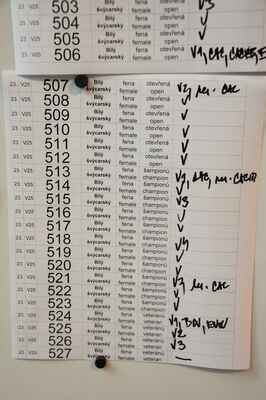 503 švýcarský female open V3
23 V25 504 Bílý fena otevřená
švýcarský female open
23 V25 505 Bílý fena otevřená
švýcarský female open
23 V25 506 Bílý fena otevřená V1, CAC,
švýcarský female open
23 V25 507 Bílý fena otevřená V2, res. CAC
švýcarský female open
23 V25 508 Bílý fena otevřená
švýcarský female open
23 V25 509 Bílý fena otevřená
švýcarský female open
23 V25 510 Bílý fena otevřená
švýcarský female open
23 V25 511 Bílý fena otevřená
švýcarský female open
23 V25 512 Bílý fena otevřená
švýcarský female open
23 V25 513 Bílý fena šampionů
švýcarský female champion
23 V25 514 Bílý fena šampionů V1, CAC, res. CACIB
švýcarský female champion
23 V25 515 Bílý fena šampionů V3
švýcarský female champion
23 V25 516 Bílý fena šampionů
švýcarský female champion
23 V25 517 Bílý fena šampionů
švýcarský female champion
23 V25 518 Bílý fena šampionů V4
švýcarský female champion
23 V25 519 Bílý fena šampionů
švýcarský female champion
23 V25 520 Bílý fena šampionů
švýcarský female champion
23 V25 521 Bílý fena šampionů V2, res. CAC
švýcarský female champion
23 V25 522 Bílý fena šampionů
švýcarský female champion
23 V25 523 Bílý fena šampionů
švýcarský female champion
23 V25 524 Bílý fena veteránů V1, BOV,
švýcarský female veteran
23 V25 525 Bílý fena veteránů V2
švýcarský female veteran
23 V25 526 Bílý fena veteránů V3
švýcarský female veteran
23 V25 527 Bílý fena veteránů —
female veteran